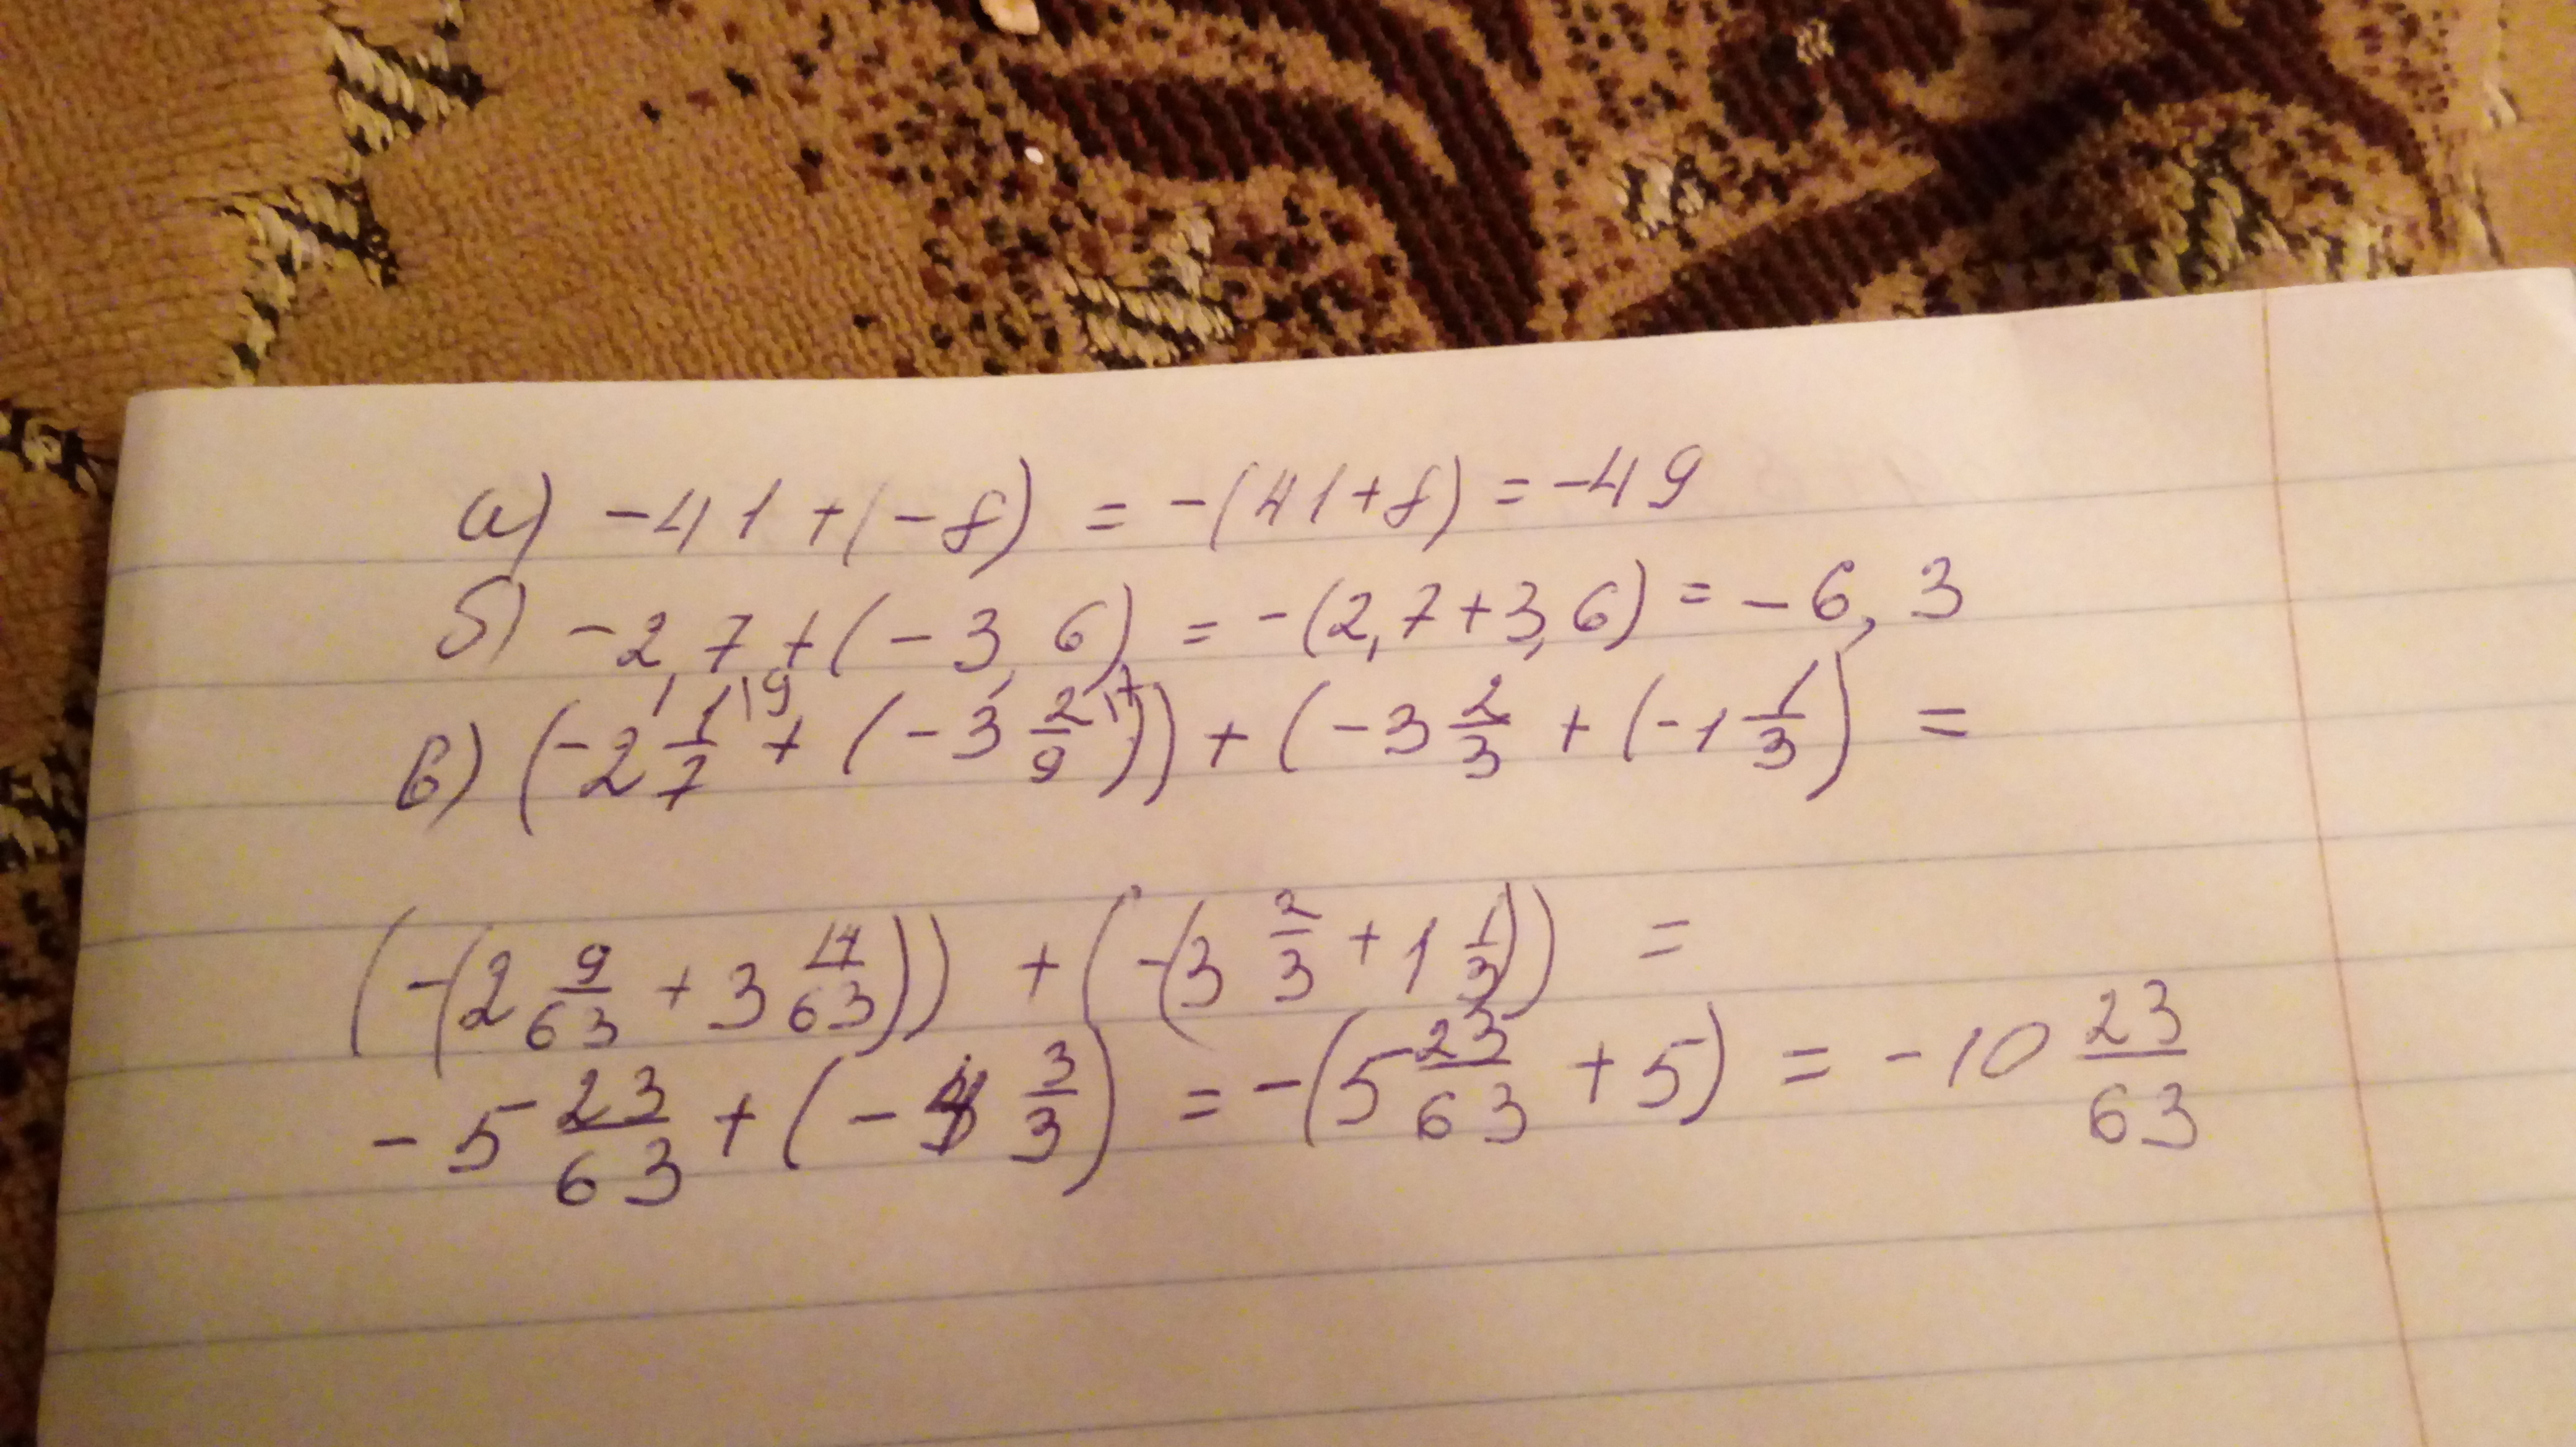 а) -41+(-8) = -(41+8) = -49
б) -2,7+(-3,6) = -(2,7+3,6) = -6,3
в) (-2 1/7 \9 + (-3 2/9 \7)) + (-3 2/3 + (-1 1/3) =
(-(2 9/63 + 3 14/63)) + (-(3 2/3 + 1 1/3)) =
-5 23/63 + (-4 3/3) = -(5 23/63 + 5) = -10 23/63